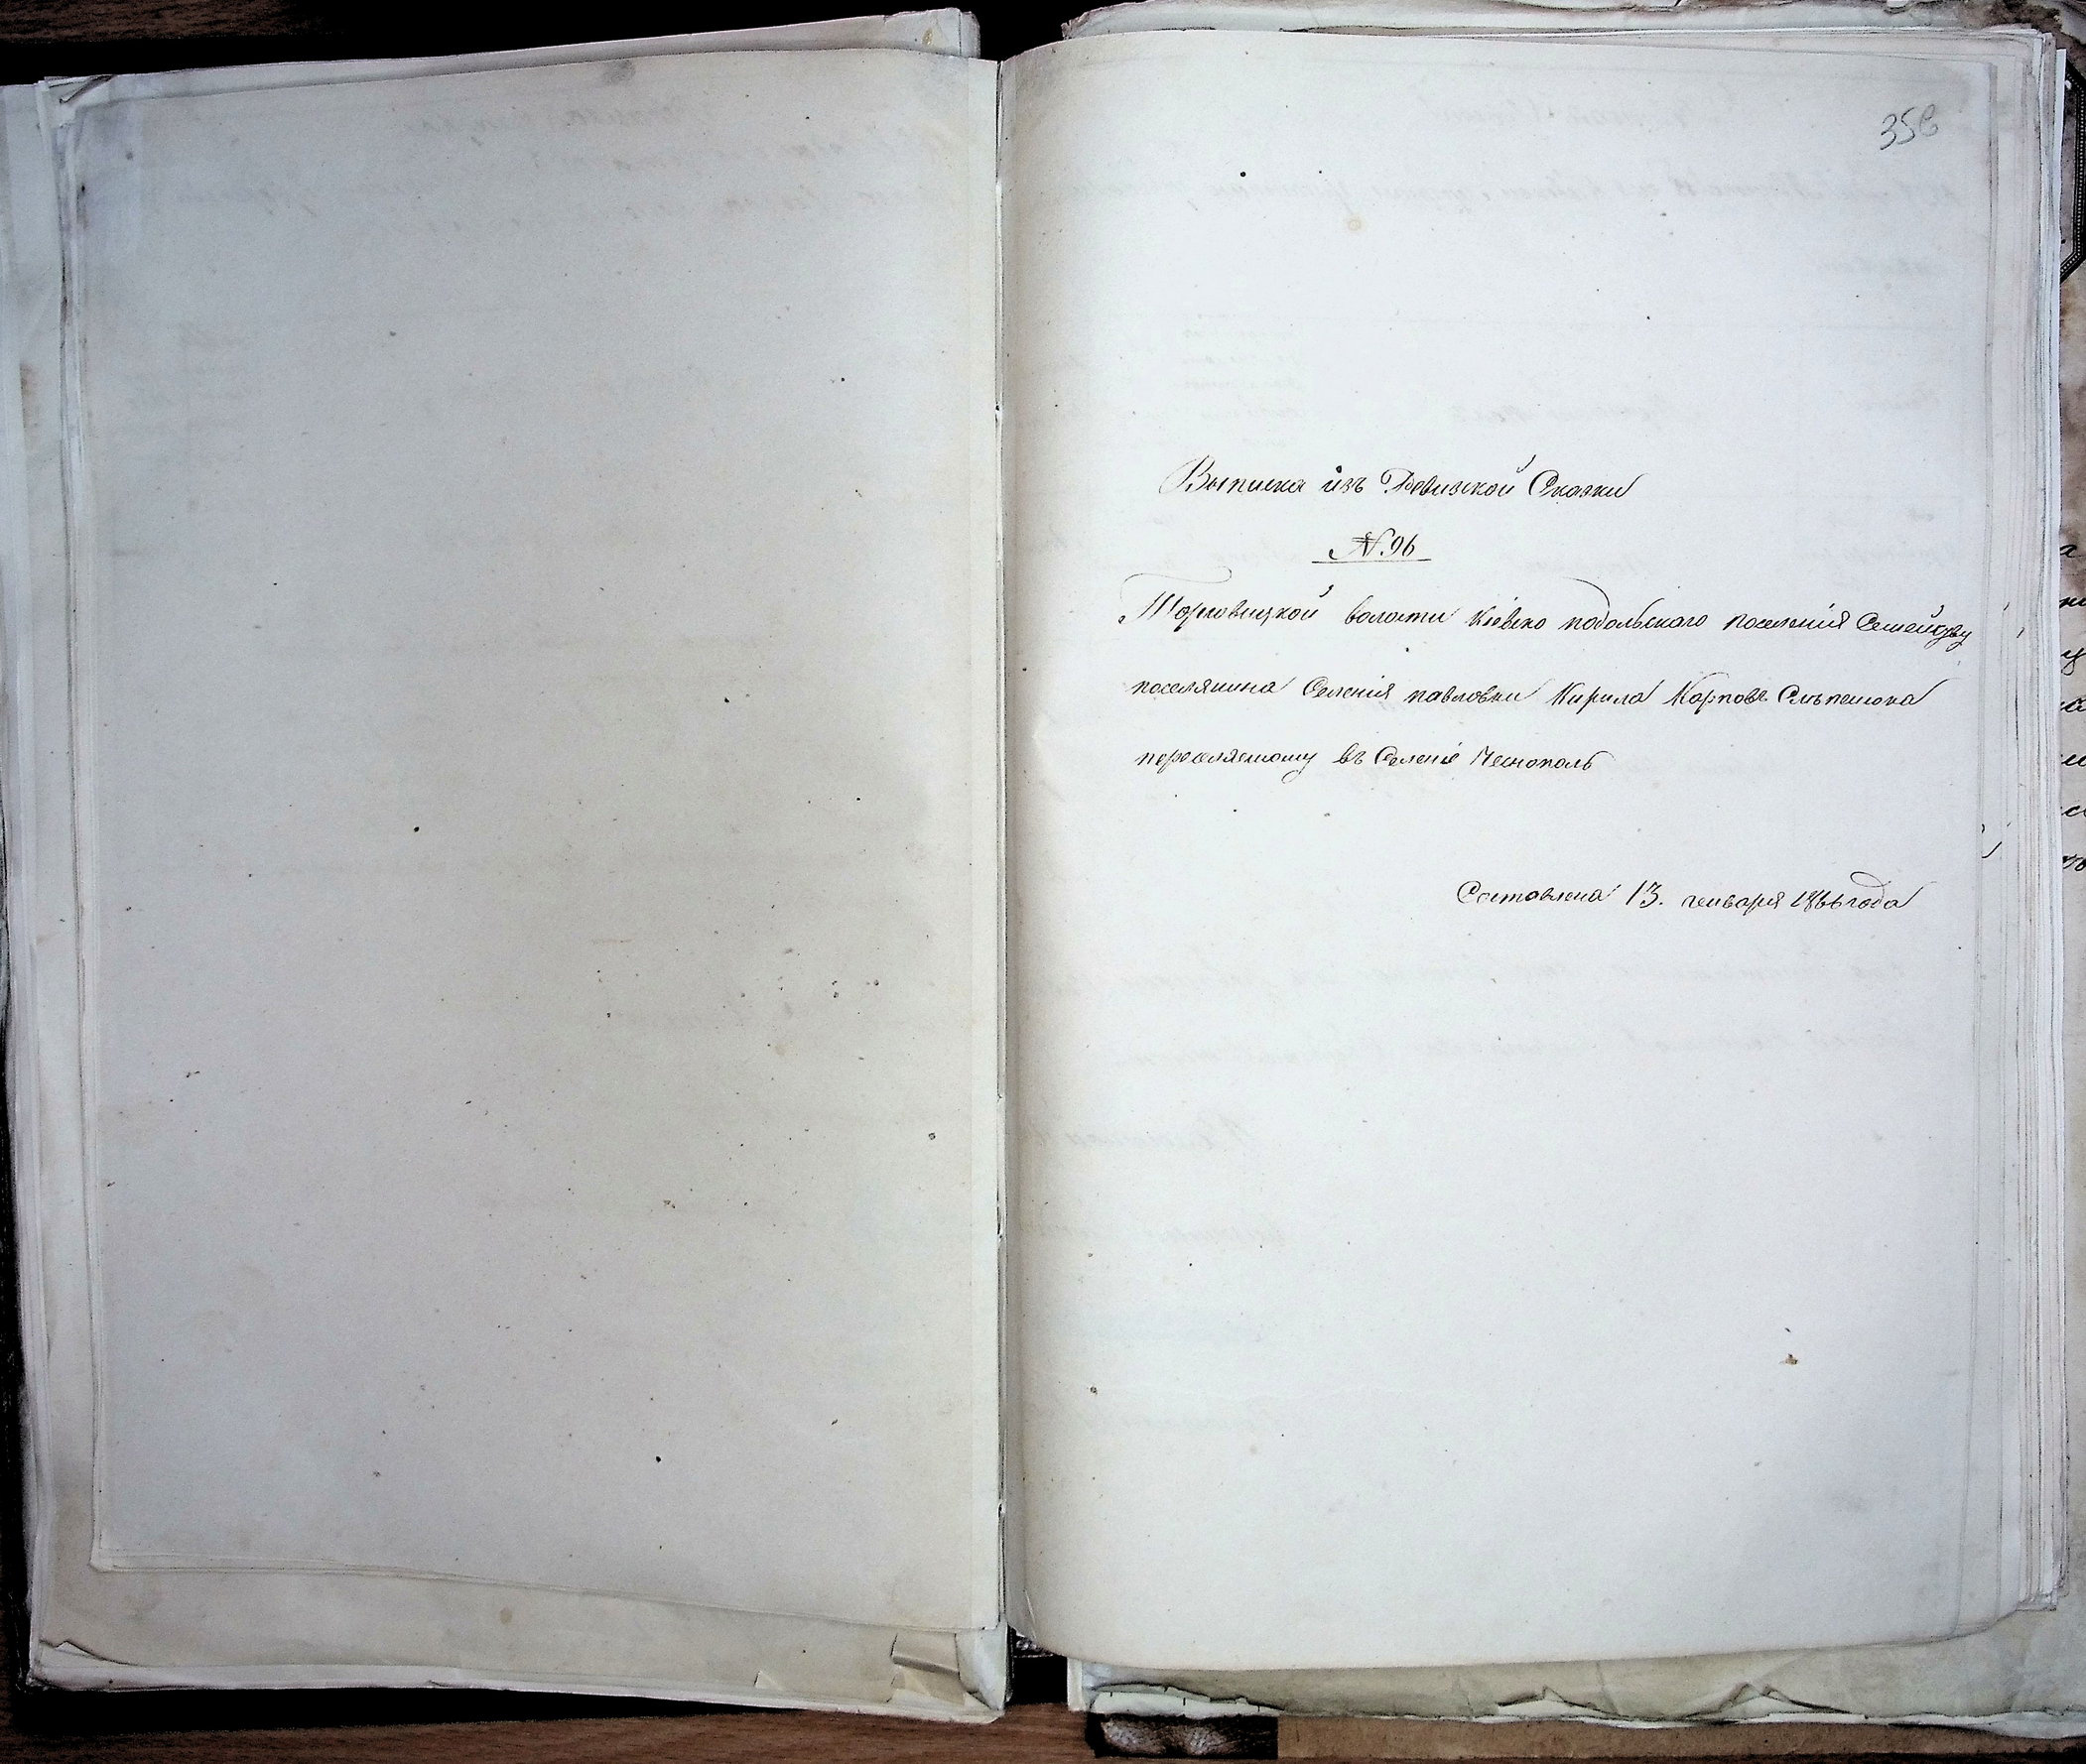 356
Выписка изъ Ревизкой Сказки
№. 96
Торговицкой волости Кіевско подольского поселенія Семейству
поселянина Селенія павловки Кирила Карпова
переселяемому въ Селеніе Песнополь
Составлена 13. генваря 1866 года